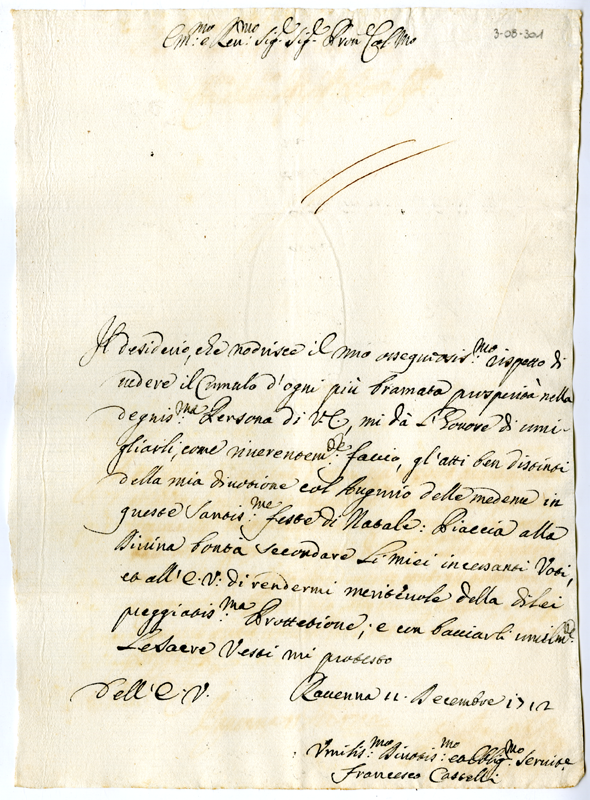 Em.mo e Reu.mo Sig.r Sig.r Pron Col.mo
3-08-301
Il desiderio, che nodrisce il mio ossequiosis.mo rispetto di
uedere il Cumulo d'ogni più bramata prosperità nella
degnis.ma Persona di V.E., mi dà l'honore di umi-
gliarli, come riuerentem.te faccio, gl'atti ben distinti
della mia diuotione col augurio delle medeme in
queste Santis.me feste di Natale: Piaccia alla
Diuina bontà secondare li miei incessanti Voti,
ed all'E.V. di rendermi meriteuole della di lei
preggiatis.ma Prottetione; e con bacciarli umilm.te
Le Sacre Vesti mi protesto
Dell'E.V. Rauenna 11. Decembre 1712
Vmilis.mo Diuotis.mo ed Oblig.mo Seruitre
Francesco Castelli